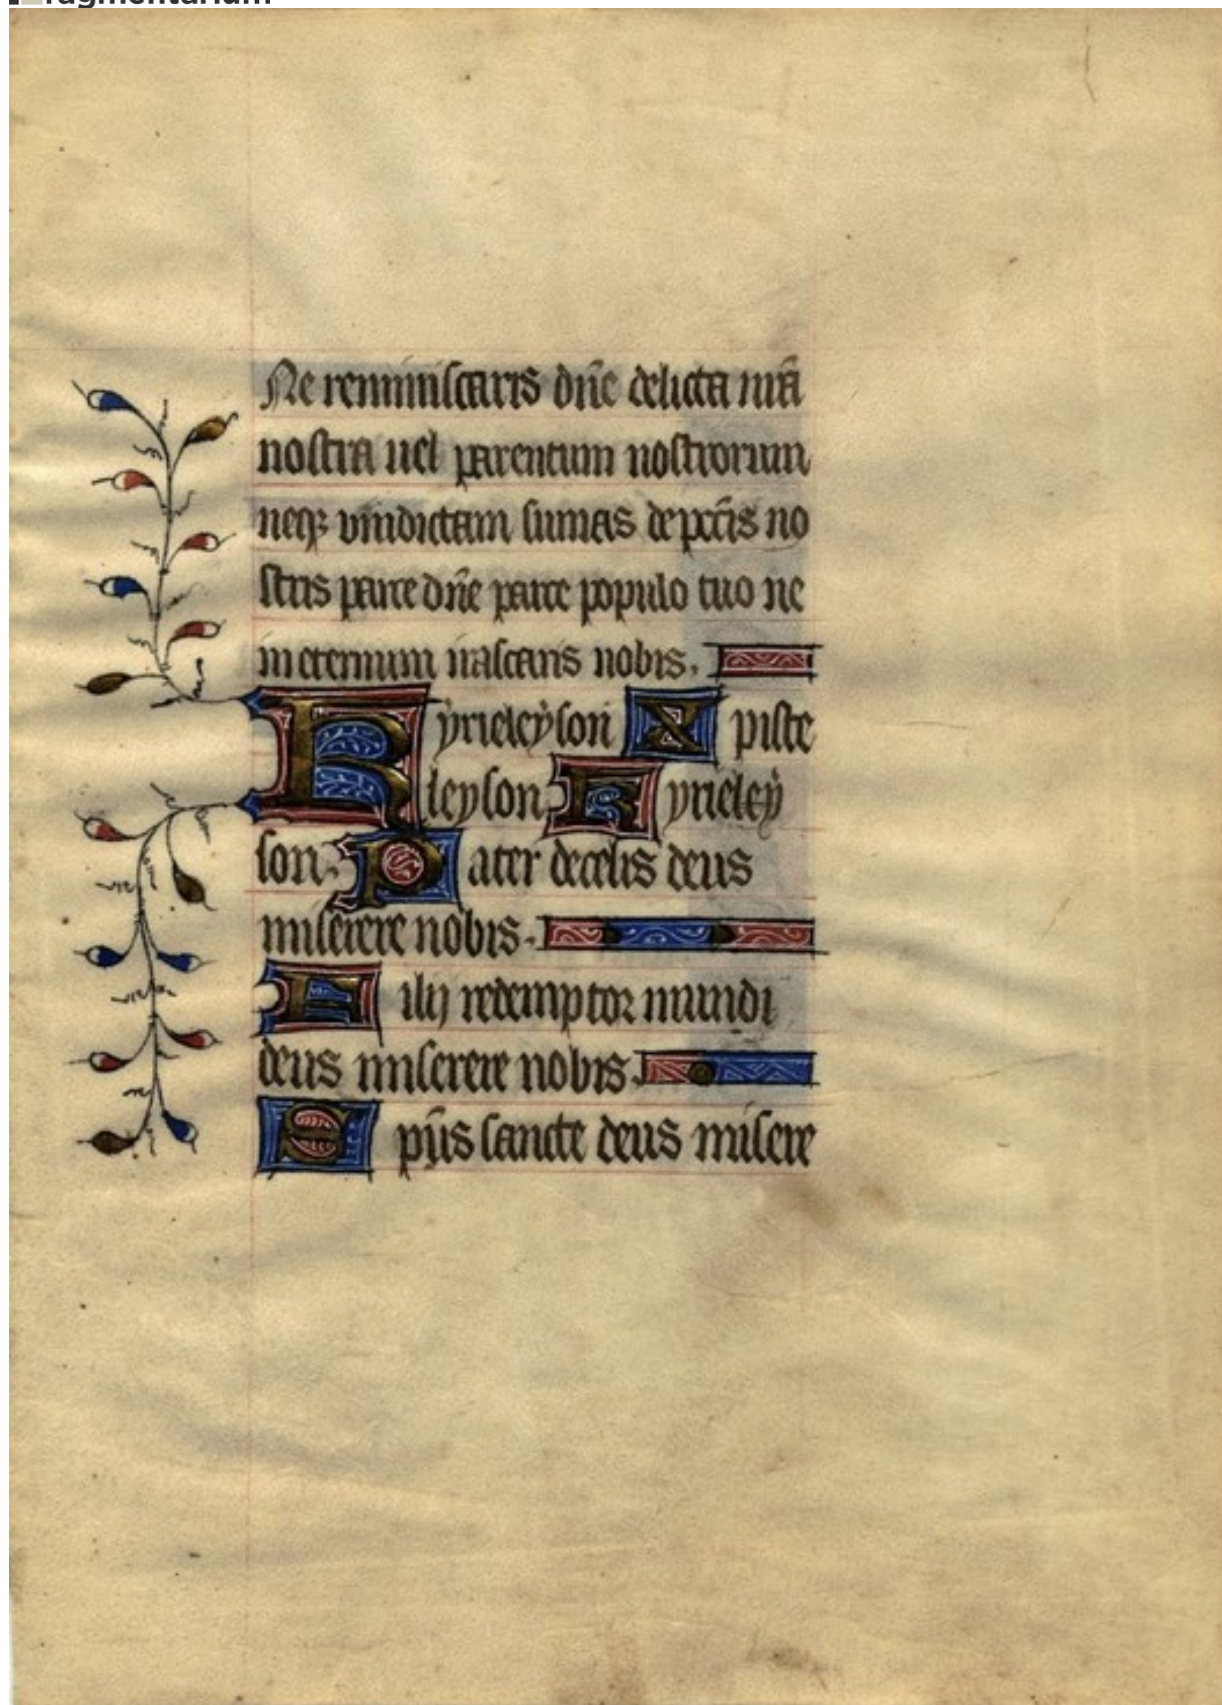 Fragmentarium
Ne reminiscaris dn̄e delicta nr̄a
nostra uel parentum nostrorum
neqꝫ vindictam sumas de pccīs no
stris parce dn̄e parce populo tuo ne
in eternum irascaris nobis.
Kyrieleyson Xpiste
leyson Kyrieley
son. Pater de celis deus
miserere nobis.
Filij redemptor mundi
deus miserere nobis.
Spūs sancte deus misere